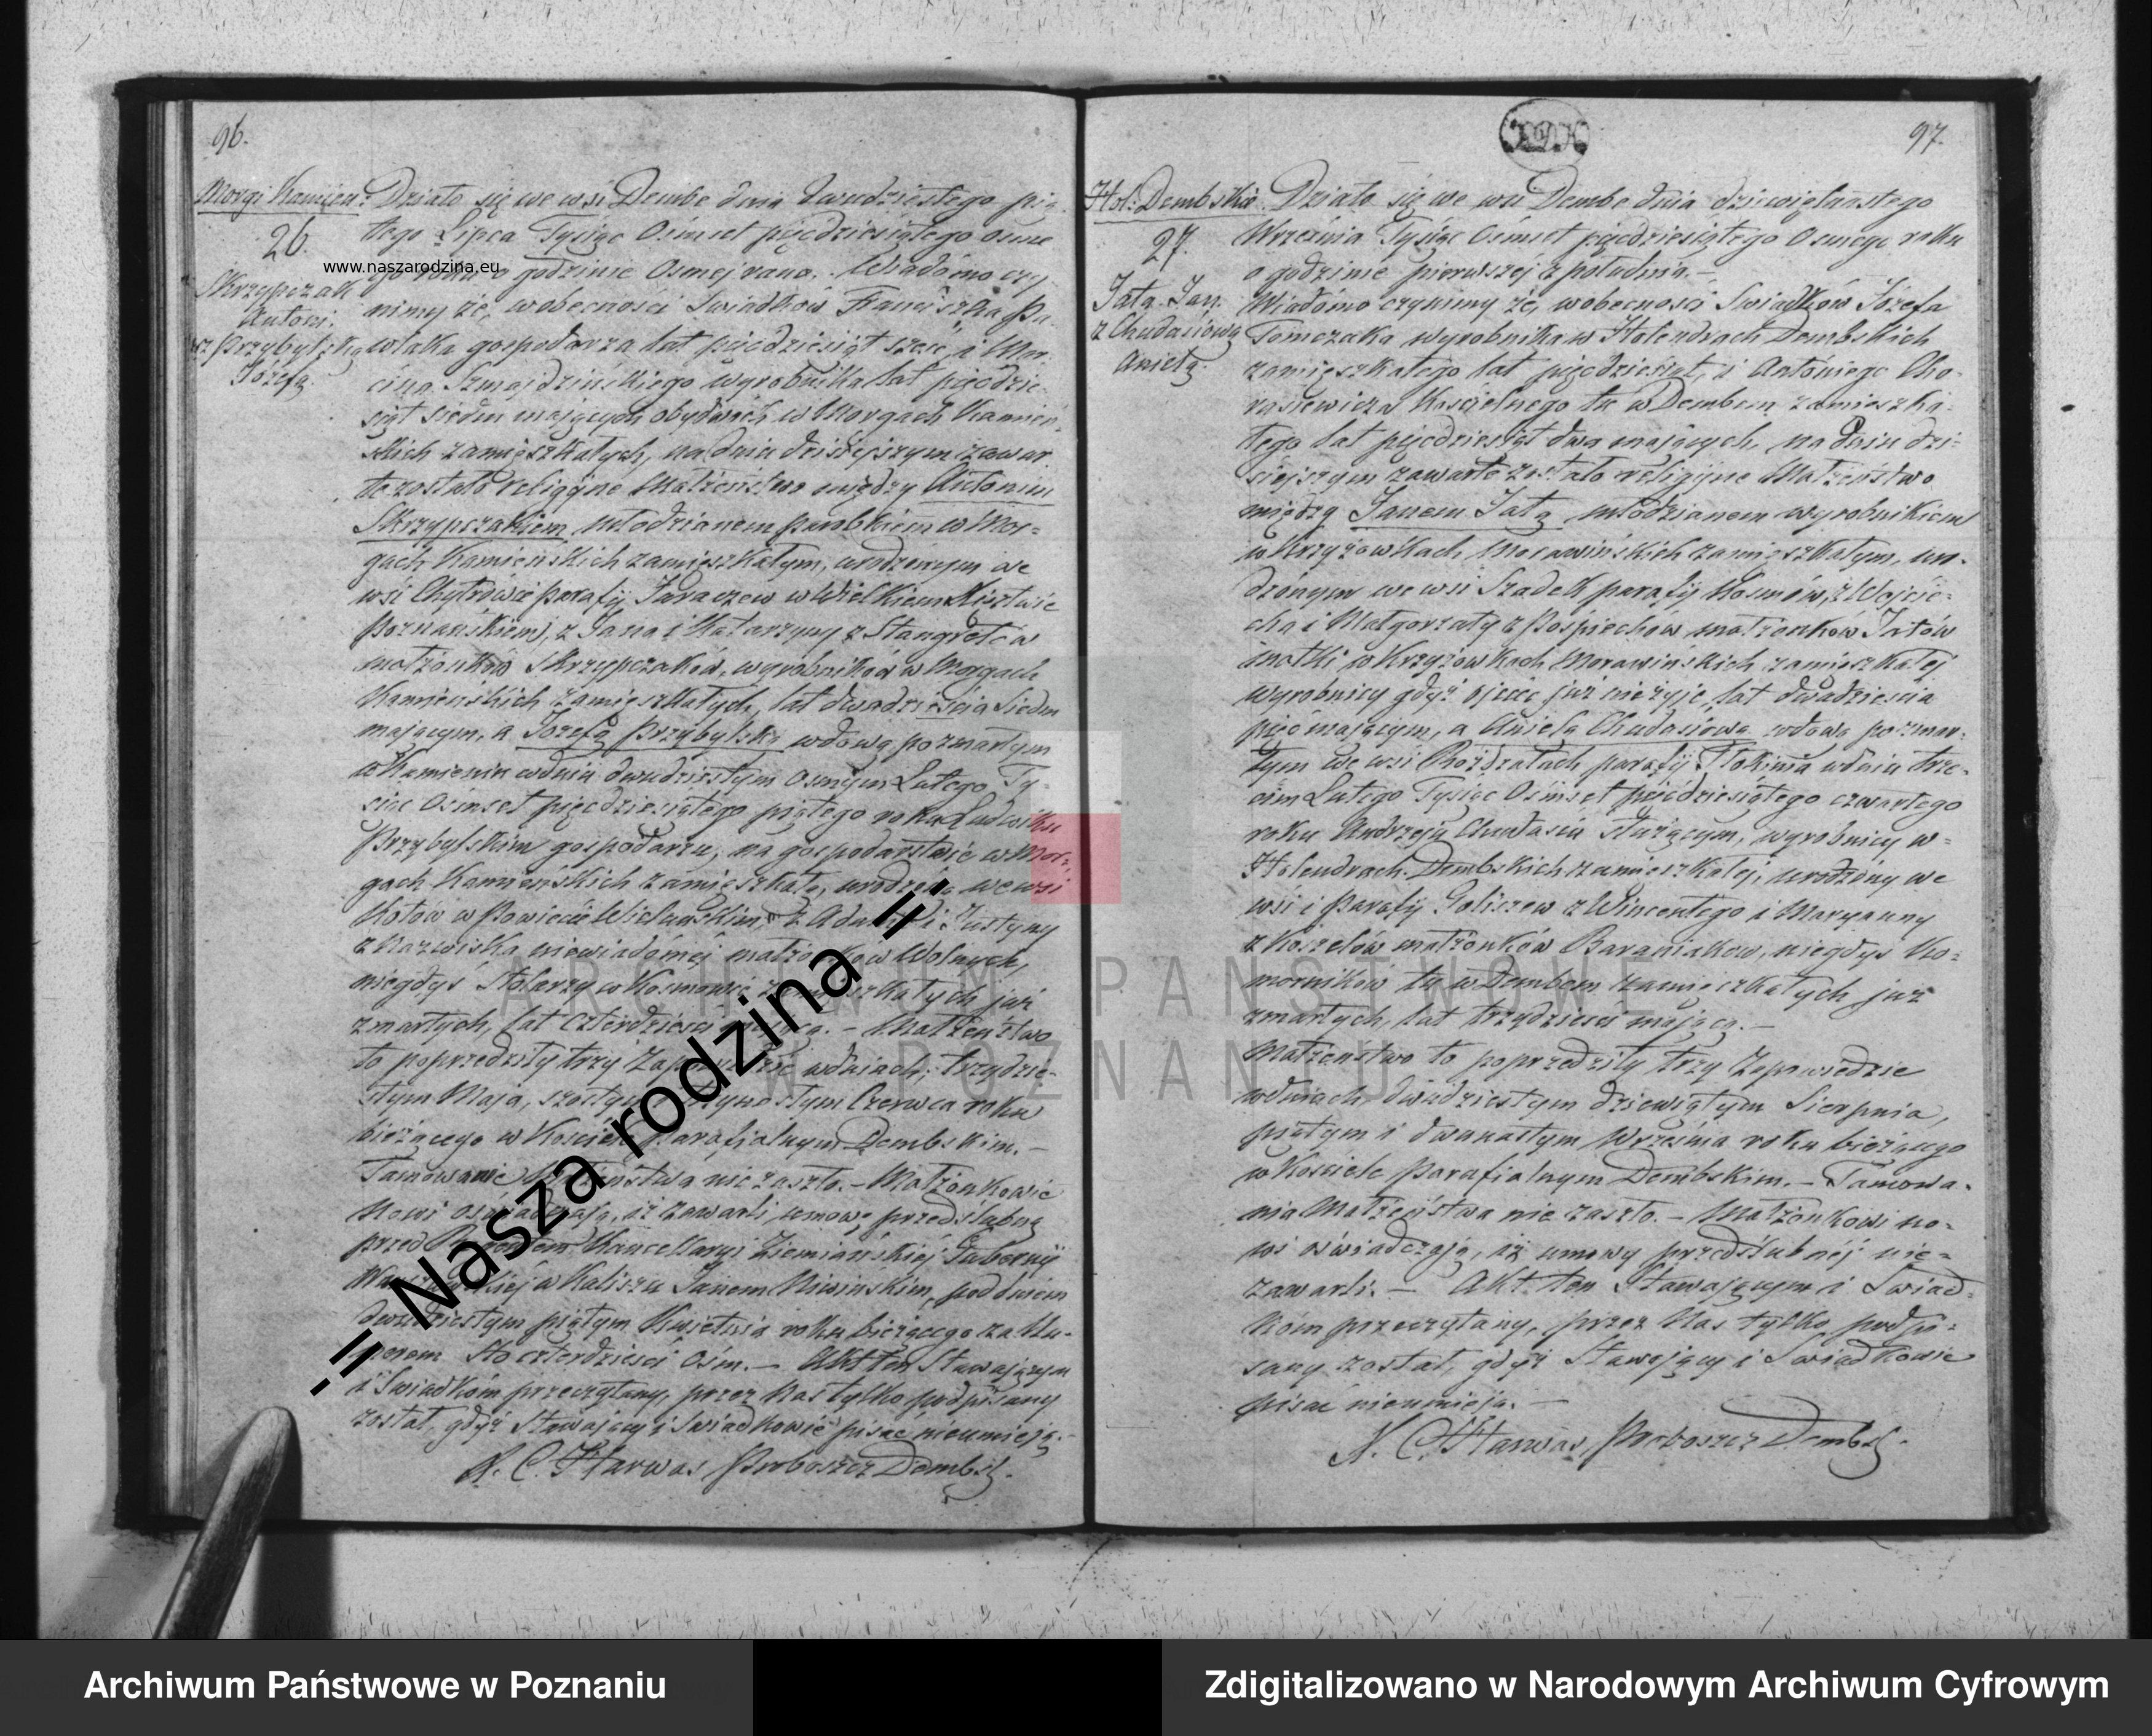 96.
Morgi Kamień:
26.
Skrzypczak
Antoni.
z Przybylską
Józefą.
Działo się we wsi Dembe dnia dwudziestego pią-
tego Lipca Tysiąc Ośmset pięćdziesiątego osme
go roku o godzinie Osmej rano. Wiadomo czy-
nimy że, wobecności Swiadków Franciszka Pa-
wlaka gospodarza lat pięćdziesiąt sześć, i Mar-
cina Szmajdzińskiego wyrobnika lat pięćdzie-
siąt siedm mających obydwóch w Morgach Kamień-
skich zamieszkałych, na dniu dzisiejszym zawar
te zostało religijne Małżeństwo między Antonim
Skrzypczakiem, młodzianem parobkiem w Mor-
gach Kamieńskich zamieszkałym, urodzonym we
wsi Chytrowie parafij Jaraczew w Wielkiem Xięstwie
Poznańskiem, z Jana i Katarzyny z Stangretów
małżonków Skrzypczaków, wyrobników w Morgach
Kamieńskich zamieszkałych, lat dwadzieścia siedm
mającym, a Józefą Przybylską wdową po zmarłym
w Kamieniu w dniu dwudziestym osmym Lutego Ty-
siąc Osmset pięćdziesiątego piątego roku Ludwiku
Przybylskim gospodarzu, na gospodarstwie w Mor-
gach Kamieńskich zamieszkałą, urodzoną we wsi
Kotów w Powiecie Wieluńskim, z Adama i Justyny
z nazwiska niewiadomej małżonków Wolnych,
niegdyś Stolarzy w Kosmowie zamieszkałych już
zmarłych, lat czterdzieści mającą. – Małżeństwo
to poprzedziły trzy Zapowiedzie w dniach; trzydzie-
stym Maja, szóstym i trzynastym Czerwca roku
bieżącego w Kościele Parafialnym Dembskim. –
Tamowanie Małżeństwa nie zaszło. – Małżonkowie
nowi oświadczają, iż zawarli umowę przedślubną
przed Rejentem Kancellaryi Ziemiańskiej Gubernij
Warszawskiej w Kaliszu Janem Niwinskim, pod dniem
dwudziestym piątym Kwietnia roku bieżącego za Nu-
merem sto czterdzieści ośm. – Akt ten Stawającym
i Swiadkóm przeczytany, przez nas tylko podpisany
został, gdyż Stawający i Swiadkowie pisać nieumieją. –
X. C. Harwas Proboszcz Dembsk.
97.
Hol: Dembskie
27.
Jata Jan.
z Chudasiową
Anielą.
Działo się we wsi Dembe dnia dziewiętnastego
Września Tysiąc Ośmset pięćdziesiątego Osmego roku
o godzinie pierwszej z południa. –
Wiadomo czynimy że, wobecności Swiadków Józefa
Tomczaka wyrobnika w Holendrach Dembskich
zamieszkałego lat pięćdziesiąt, i Antóniego Cho-
rasiewicza Kościelnego tu w Dembem zamieszka-
łego lat pięćdziesiąt dwa mających, na dniu dzi-
siejszym zawarte zostało religijne Małżeństwo
między Janem Jatą, młodzianem wyrobnikiem
w Krzyżówkach Morawińskich zamieszkałym, uro-
dzonym we wsi Szadek parafij Kosmów, z Wojcie-
cha i Małgorzaty z Pośpiechów małżonków Jatów
matki w Krzyżówkach Morawińskich zamieszkałej
wyrobnicy gdyż ojciec już nieżyje, lat dwadzieścia
pięć mającym, a Anielą Chudasiową wdową po zmar-
łym we wsi Rożdżałach parafij Tłokinia w dniu trze-
cim Lutego Tysiąc Ośmset pięćdziesiątego czwartego
roku Andrzeju Chudasiu służącym, wyrobnicy w
Holendrach Dembskich zamieszkałej, urodzony we
wsi i Parafij Goliszew z Wincentego i Maryanny
z Koszelów małżonków Baraniaków, niegdyś Ko-
morników tu w Dembem zamieszkałych już
zmarłych, lat trzydzieści mającą. –
Małżeństwo to poprzedziły trzy Zapowiedzie
w dniach, dwudziestym dziewiątym Sierpnia,
piątym i dwunastym Września roku bieżącego
w Kościele Parafialnym Dembskim. – Tamowa-
nia Małżeństwa nie zaszło. – Małżonkowi no-
wi oświadczają, iż umowy przedślubnej nie-
zawarli. – Akt ten Stawającym i Swiad-
kóm przeczytany, przez Nas tylko podpi-
sany został, gdyż Stawający i Swiadkowie
pisać nieumieją. –
X. C. Harwas Proboszcz Dembsk.
www.naszarodzina.eu
-:: Nasza rodzina ::-
ARCHIWUM PAŃSTWOWE
W POZNANIU
Archiwum Państwowe w Poznaniu
Zdigitalizowano w Narodowym Archiwum Cyfrowym